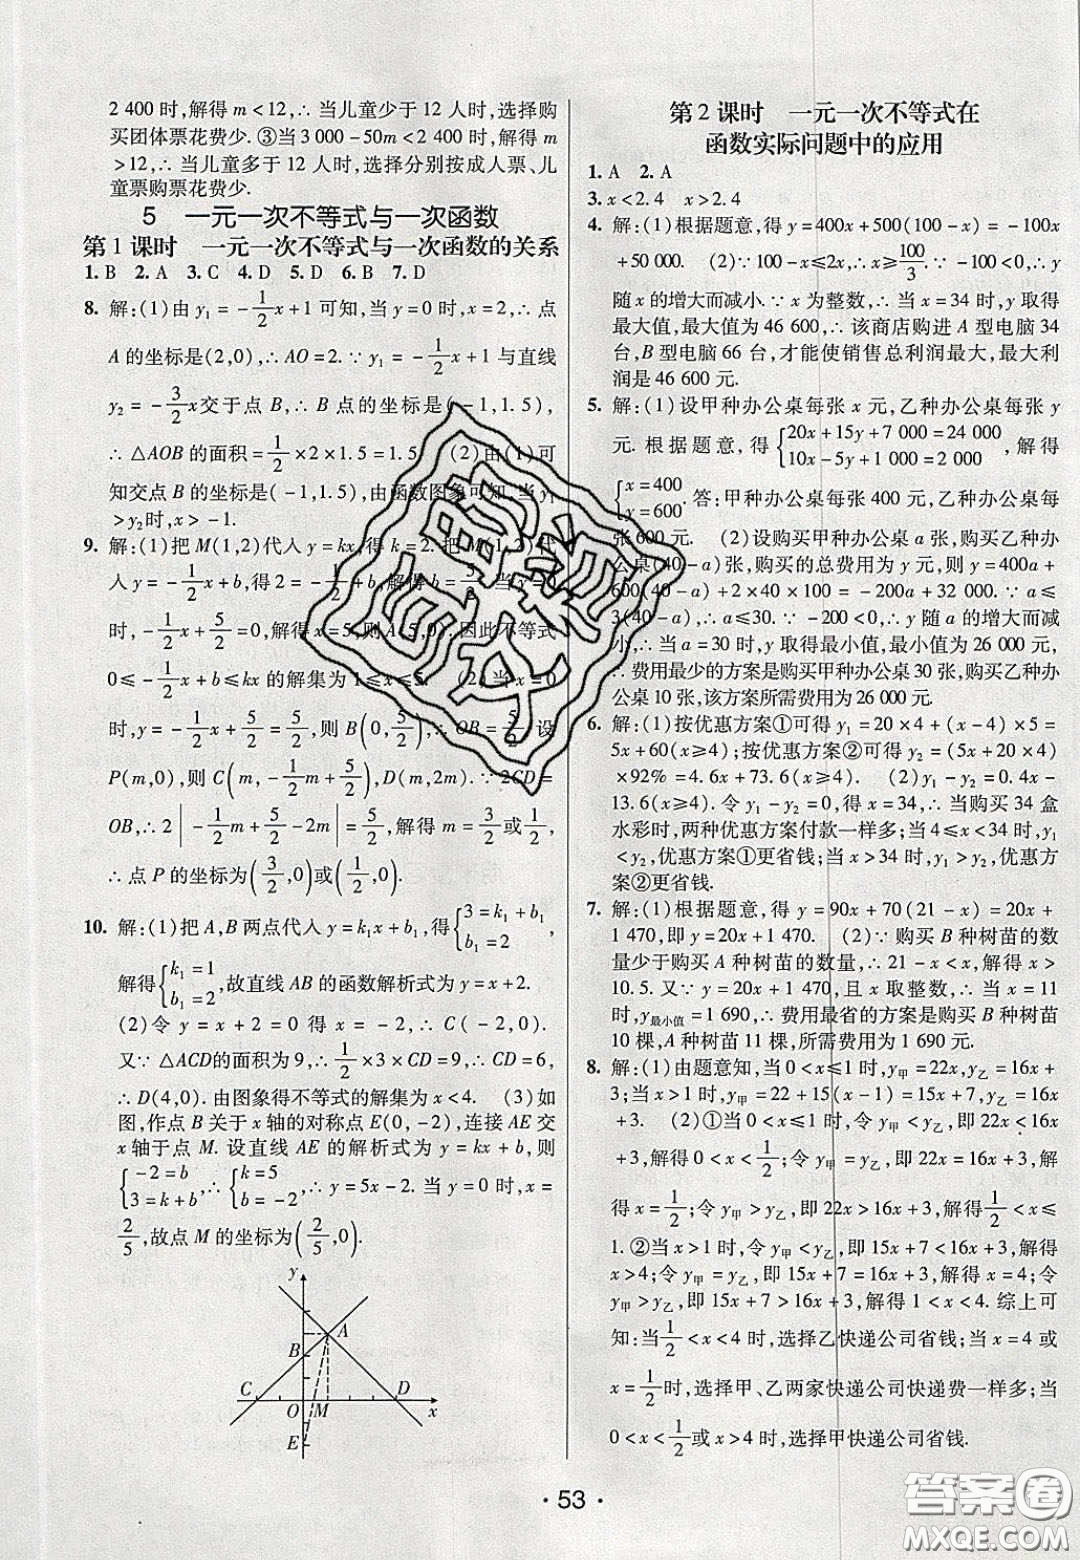 2 400 时,解得 m<12,∴ 当儿童少于 12 人时,选择购
买团体票花费少. ③当 3 000-50m<2 400 时,解得 m
>12,∴ 当儿童多于 12 人时,选择分别按成人票、儿
童票购票花费少.
5 一元一次不等式与一次函数
第 1 课时 一元一次不等式与一次函数的关系
1. B 2. A 3. C 4. D 5. D 6. B 7. D
8. 解:(1)由 y₁=-1/2x+1 可知,当 y=0 时,x=2,∴ 点
A 的坐标是(2,0),∴ AO=2. ∵ y₁=-1/2x+1 与直线
y₂=-3/2x交于点 B,∴ B 点的坐标是(-1,1.5),
∴ △AOB 的面积=1/2×2×1.5=1.5. (2)由(1)可
知交点 B 的坐标是(-1,1.5),由函数图象可知,当 y₁
>y₂时,x>-1.
9. 解:(1)把 M(1,2)代入 y=kx,得 k=2. 把 M(1,2)代
入 y=-1/2x+b,得 2=-1/2+b,解得 b=5/2. 当 y=0
时,-1/2x+5/2=0,解得 x=5,则 A(5,0). 因此不等式
0≤-1/2x+b≤kx 的解集为 1≤x≤5. (2)当 x=0
时,y=-1/2x+5/2=5/2,则 B(0,5/2),∴ OB=5/2. 设
P(m,0),则 C(m,-1/2m+5/2),D(m,2m). ∵ 2CD=
OB,∴ 2|-1/2m+5/2-2m|=5/2,解得 m=3/2或1/2,
∴ 点 P 的坐标为(3/2,0)或(1/2,0).
10. 解:(1)把 A,B 两点代入 y=k₁x+b₁,得{3=k₁+b₁, b₁=2
解得{k₁=1 b₁=2,故直线 AB 的函数解析式为 y=x+2.
(2)令 y=x+2=0 得 x=-2,∴ C(-2,0).
又∵ △ACD的面积为 9,∴ 1/2×3×CD=9,∴ CD=6,
∴ D(4,0). 由图象得不等式的解集为 x<4. (3)如
图,作点 B 关于 x 轴的对称点 E(0,-2),连接 AE 交
x 轴于点 M. 设直线 AE 的解析式为 y=kx+b,则
{-2=b 3=k+b,∴{k=5 b=-2,∴ y=5x-2. 当 y=0 时,x=
2/5,故点 M 的坐标为(2/5,0).
y
A
B
C
D
O M x
E
第 2 课时 一元一次不等式在
函数实际问题中的应用
1. A 2. A
3. x<2.4 x>2.4
4. 解:(1)根据题意,得 y=400x+500(100-x)=-100x
+50 000. (2)∵ 100-x≤2x,∴ x≥100/3. ∵ -100<0,∴ y
随 x 的增大而减小. ∵ x 为整数,∴ 当 x=34 时,y 取得
最大值,最大值为 46 600,∴ 该商店购进 A 型电脑 34
台,B 型电脑 66 台,才能使销售总利润最大,最大利
润是 46 600 元.
5. 解:(1)设甲种办公桌每张 x 元,乙种办公桌每张 y
元. 根据题意,得{20x+15y+7 000=24 000 10x-5y+1 000=2 000,解得
{x=400 y=600. 答:甲种办公桌每张 400 元,乙种办公桌每
张 600 元. (2)设购买甲种办公桌 a 张,则购买乙种办
公桌(40-a)张,购买的总费用为 y 元,则 y=400a+
600(40-a)+2×40×100=-200a+32 000. ∵ a≤
3(40-a),∴ a≤30. ∵ -200<0,∴ y 随 a 的增大而减
小,∴ 当 a=30 时,y 取得最小值,最小值为 26 000 元,
∴ 费用最少的方案是购买甲种办公桌 30 张,购买乙种办
公桌 10 张,该方案所需费用为 26 000 元.
6. 解:(1)按优惠方案①可得 y₁=20×4+(x-4)×5=
5x+60(x≥4);按优惠方案②可得 y₂=(5x+20×4)
×92%=4.6x+73.6(x≥4). (2)y₁-y₂=0.4x-
13.6(x≥4). 令 y₁-y₂=0,得 x=34,∴ 当购买 34 盒
水彩时,两种优惠方案付款一样多;当 4≤x<34 时,y₁
<y₂,优惠方案①更省钱;当 x>34 时,y₁>y₂,优惠方
案②更省钱.
7. 解:(1)根据题意,得 y=90x+70(21-x)=20x+
1 470,即 y=20x+1 470. (2)∵ 购买 B 种树苗的数
量少于购买 A 种树苗的数量,∴ 21-x<x,解得 x>
10.5. 又∵ y=20x+1 470,且 x 取整数,∴ 当 x=11
时,y最小值=1 690,∴ 费用最省的方案是购买 B 种树苗
10 棵,A 种树苗 11 棵,所需费用为 1 690 元.
8. 解:(1)由题意知,当 0<x≤1 时,y甲=22x,y乙=16x+
3;当 x>1 时,y甲=22+15(x-1)=15x+7,y乙=16x
+3. (2)①当 0<x≤1 时,令 y甲<y乙,即 22x<16x
+3,解得 0<x<1/2;令 y甲=y乙,即 22x=16x+3,解
得 x=1/2;令 y甲>y乙,即 22x>16x+3,解得1/2<x≤
1. ②当 x>1 时,令 y甲<y乙,即 15x+7<16x+3,解得
x>4;令 y甲=y乙,即 15x+7=16x+3,解得 x=4;令
y甲>y乙,即 15x+7>16x+3,解得 1<x<4. 综上可
知:当1/2<x<4 时,选择乙快递公司省钱;当 x=4 或
x=1/2时,选择甲、乙两家快递公司快递费一样多;当
0<x<1/2或 x>4 时,选择甲快递公司省钱.
· 53 ·
答案圈
MXQE.COM